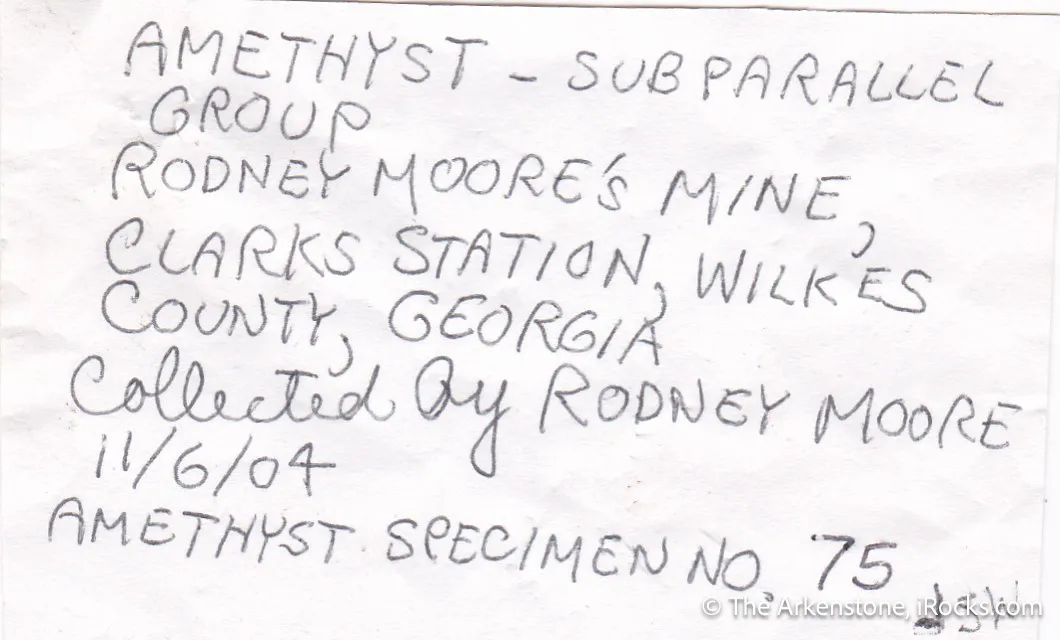 AMETHYST - SUBPARALLEL
GROUP
RODNEY MOORE'S MINE,
CLARKS STATION, WILKES
COUNTY, GEORGIA
Collected By RODNEY MOORE
11/6/04
AMETHYST SPECIMEN NO. 75
© The Arkenstone, iRocks.com